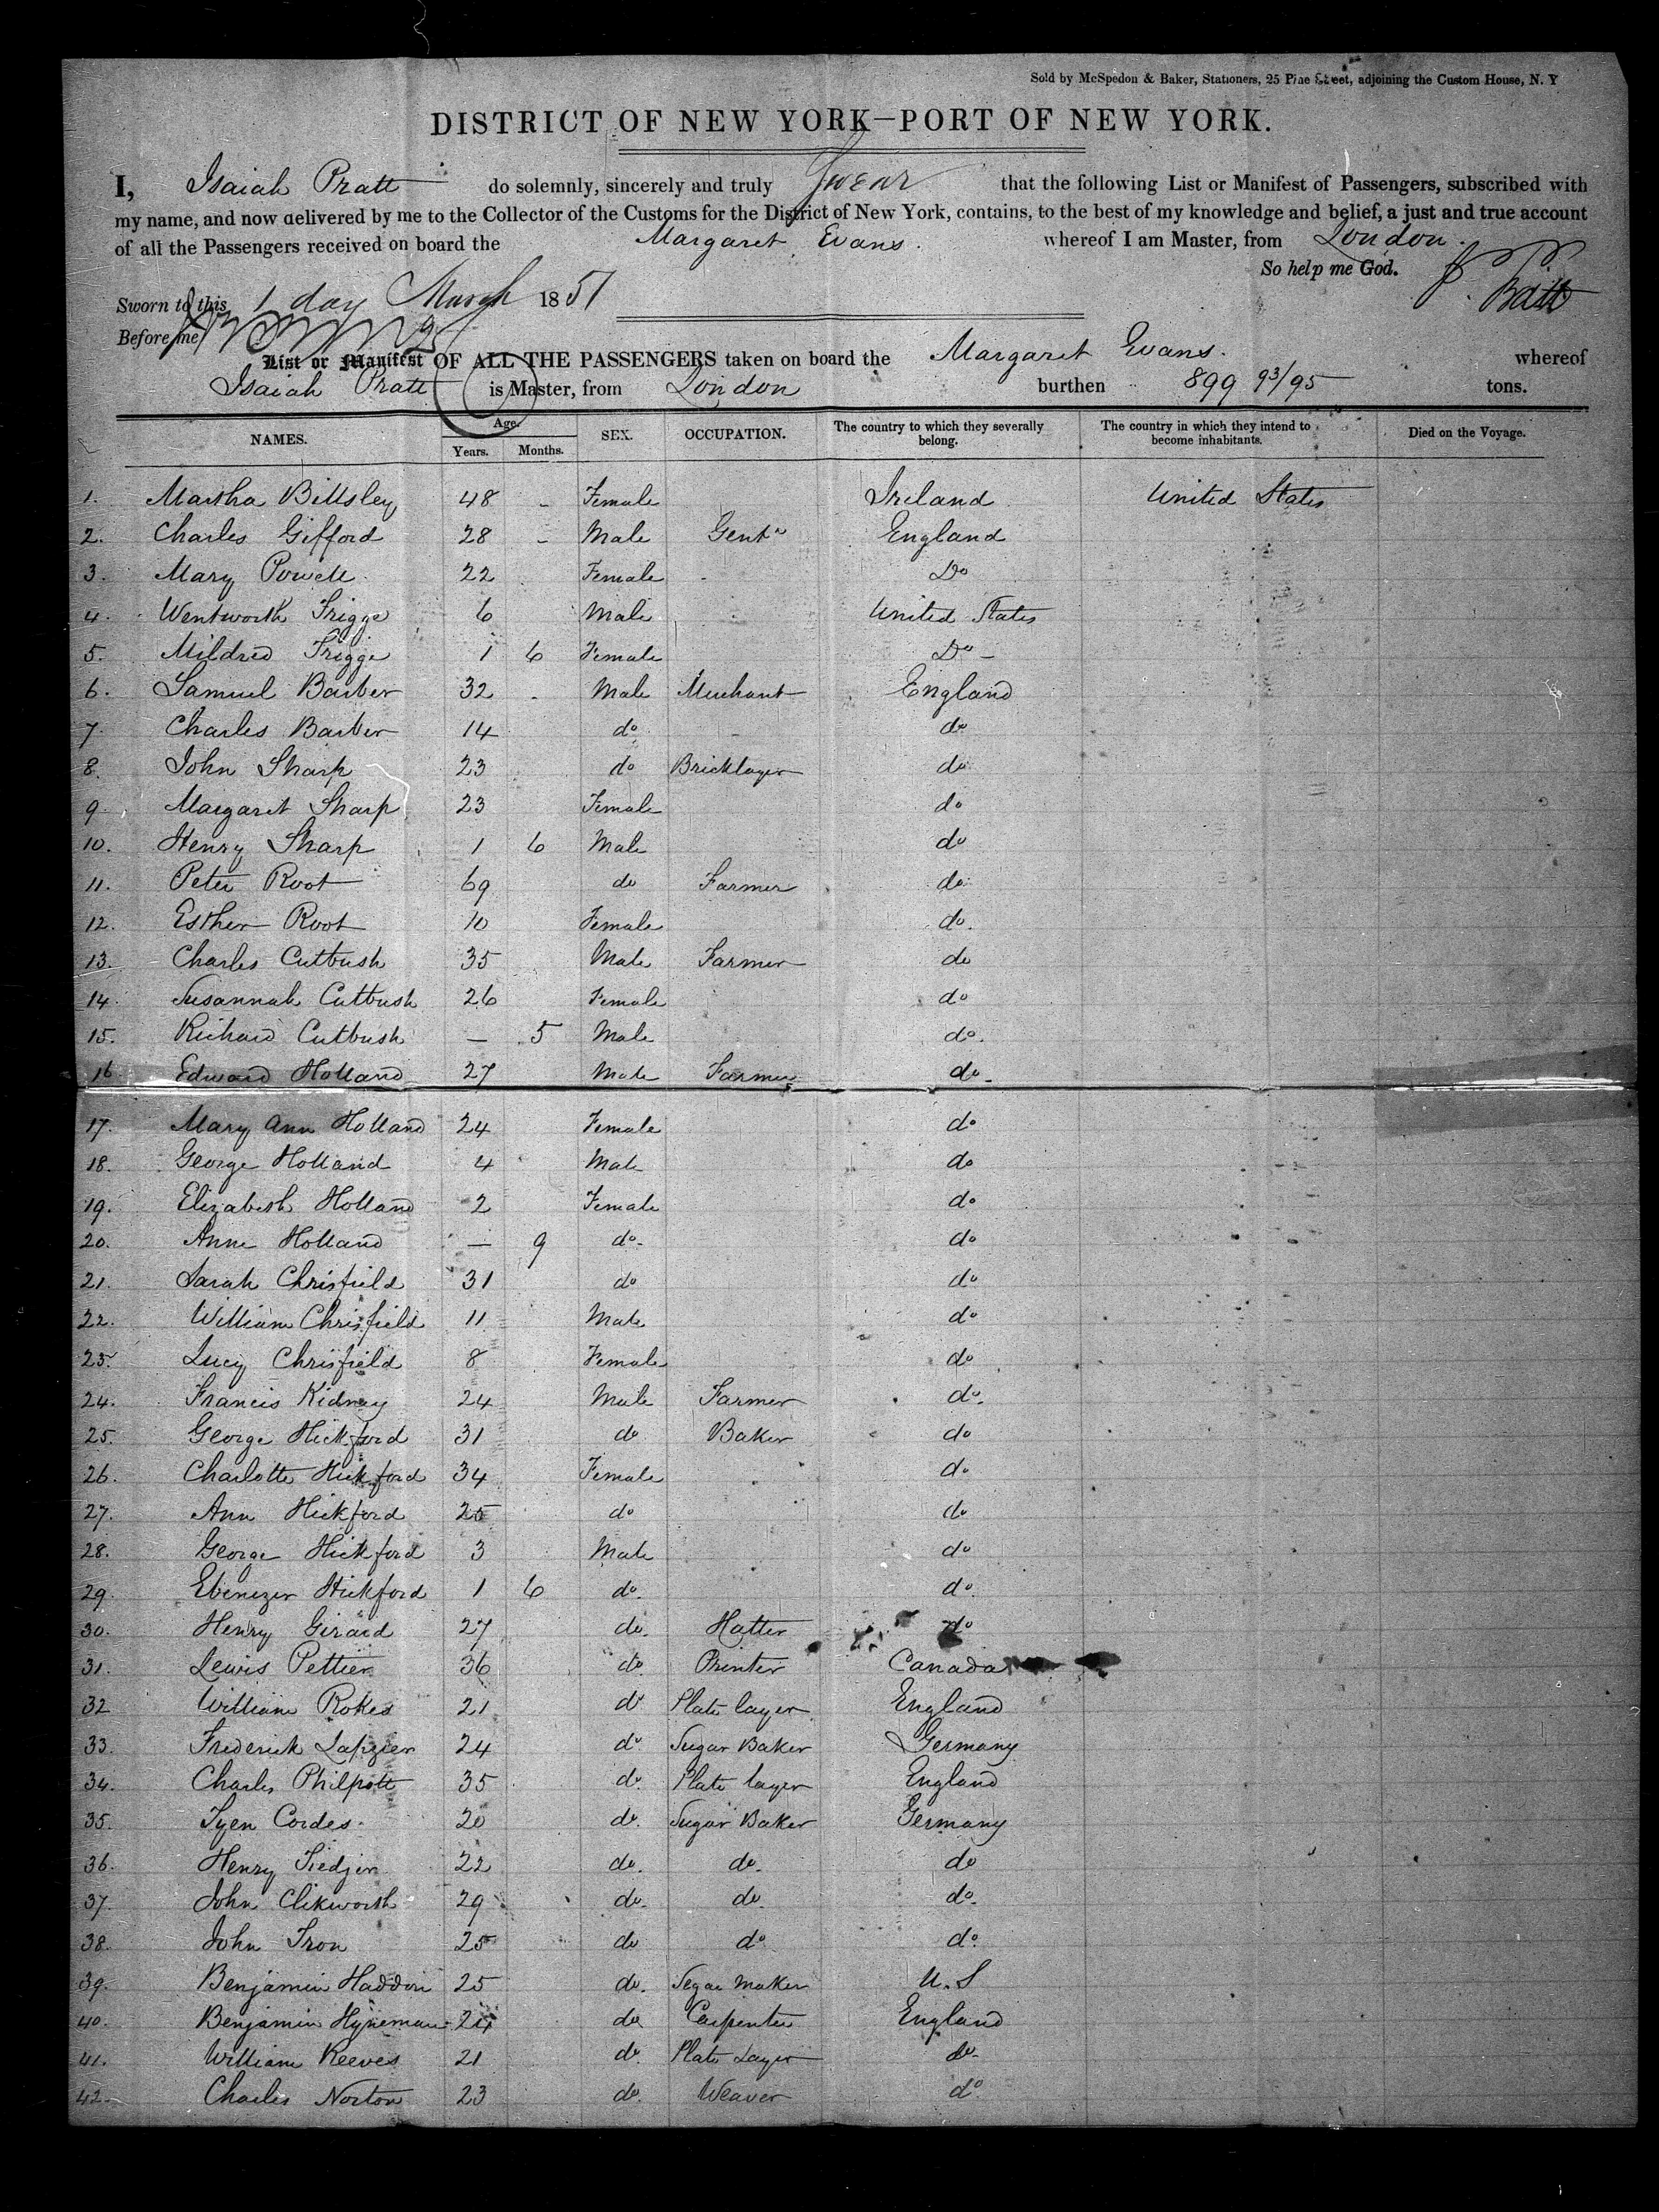 Sold by McSpedon & Baker, Stationers, 25 Pine Street, adjoining the Custom House, N. Y
DISTRICT OF NEW YORK—PORT OF NEW YORK.
I, Isaiah Pratt do solemnly, sincerely and truly Swear that the following List or Manifest of Passengers, subscribed with
my name, and now delivered by me to the Collector of the Customs for the District of New York, contains, to the best of my knowledge and belief, a just and true account
of all the Passengers received on board the Margaret Evans. whereof I am Master, from London.
So help me God. Pratt
Sworn to this 1 day March 1851
Before me
List or Manifest OF ALL THE PASSENGERS taken on board the Margaret Evans. whereof
Isaiah Pratt is Master, from London burthen 899 93/95 tons.
NAMES. Age. Years. Months. SEX. OCCUPATION. The country to which they severally belong. The country in which they intend to become inhabitants. Died on the Voyage.
1. Martha Bittsley 48 - Female Ireland United States
2. Charles Gifford 28 - Male Gentn England
3. Mary Powell 22 Female Do
4. Wentworth Frigge 6 Male United States
5. Mildred Frigge 1 6 Female Do -
6. Samuel Barber 32 - Male Merchant England
7. Charles Barber 14 do do
8. John Sharp 23 do Bricklayer do
9. Margaret Sharp 23 Female do
10. Henry Sharp 1 6 Male do
11. Peter Root 69 do Farmer do
12. Esther Root 10 Female do.
13. Charles Cutbush 35 Male Farmer do
14. Susannah Cutbush 26 Female do
15. Richard Cutbush — 5 Male do.
16 Edward Holland 27 Male Farmer do.
17. Mary Ann Holland 24 Female do
18. George Holland 4 Male do
19. Elizabeth Holland 2 Female do
20. Anne Holland — 9 do. do
21. Sarah Chrisfield 31 do do
22. William Chrisfield 11 Male do
23. Lucy Chrisfield 8 Female do
24. Francis Kidney 24 Male Farmer do.
25. George Hickford 31 do Baker do
26. Charlotte Hickford 34 Female do
27. Ann Hickford 25 do do
28. George Hickford 3 Male do
29. Ebenezer Hickford 1 6 do. do
30. Henry Girard 27 do. Hatter do
31. Lewis Pettier 36 do Printer Canada
32 William Rokes 21 do Plate layer England
33. Frederick Lapzien 24 do Sugar Baker Germany
34. Charles Philpott 35 do. Plate layer England
35. Tyen Cordes 20 do. Sugar Baker Germany
36. Henry Tiedjen 22 do. do. do
37. John Clikworth 29 do. do. do.
38. John Tron 25 do do do.
39. Benjamin Haddon 25 do. Segar Maker U. S
40. Benjamin Hyneman 24 do Carpenter England
41. William Reeves 21 do. Plate Layer do.
42. Charles Norton 23 do. Weaver do